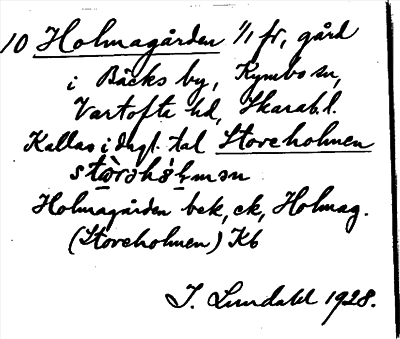 10 Holmagården 1/1 fr, gård
i Bäcks by, Kymbo sn,
Vartofta hd, Skarab. l.
Kallas i dagl. tal Storeholmen
Holmagården bek, ek, Holmag.
(Storeholmen) Kb
I. Lundahl 1928.